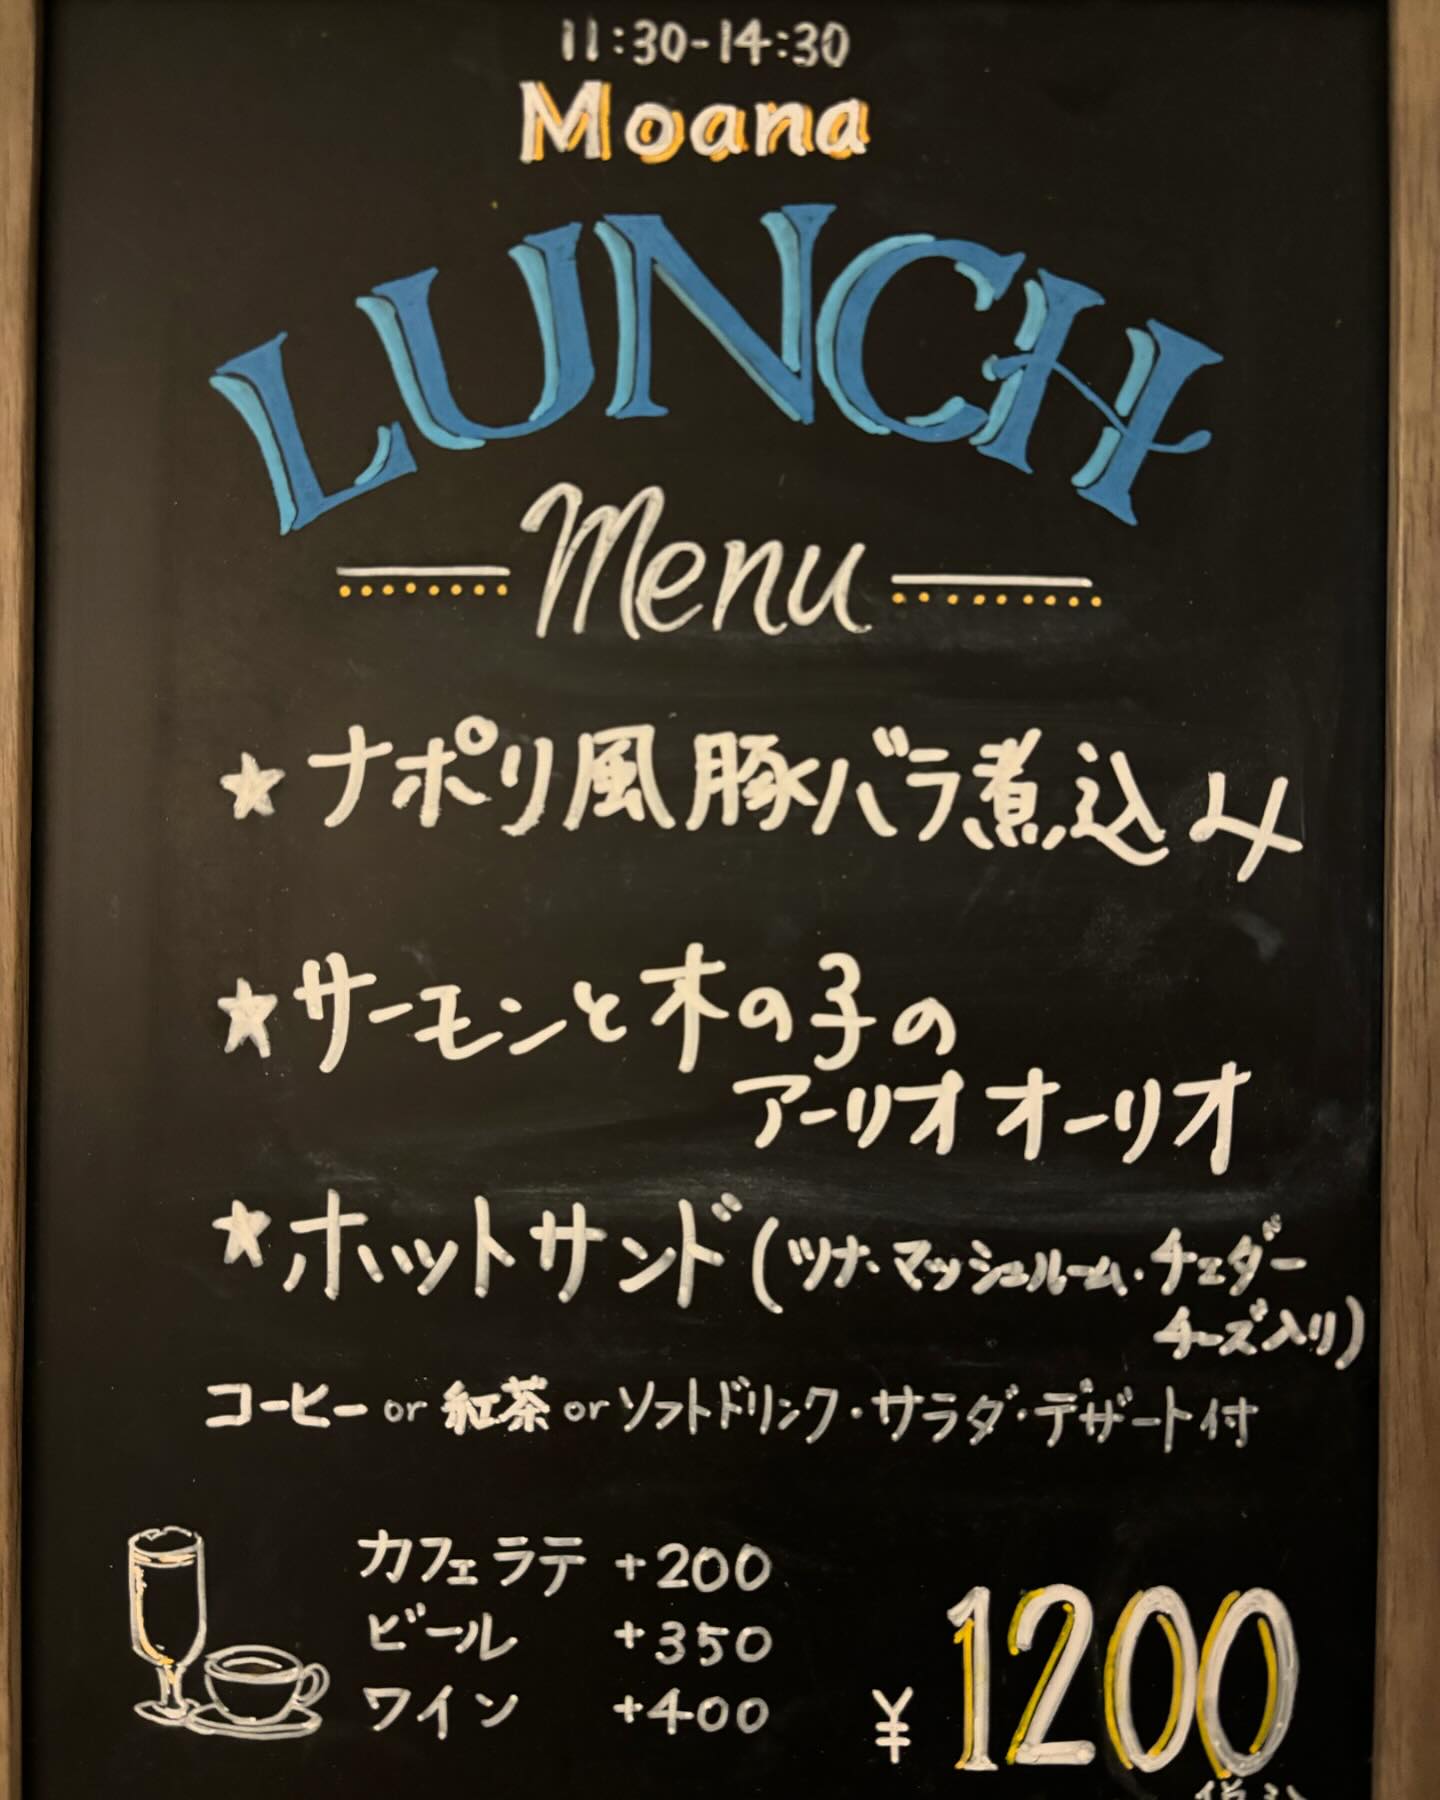 11:30-14:30
Moana
LUNCH
Menu
★ナポリ風豚バラ煮込み
★サーモンと木の子の
アーリオオーリオ
★ホットサンド(ツナ・マッシュルーム・チェダー
チーズ入り)
コーヒー or 紅茶 or ソフトドリンク・サラダ・デザート付
カフェラテ +200
ビール +350
ワイン +400
¥1200